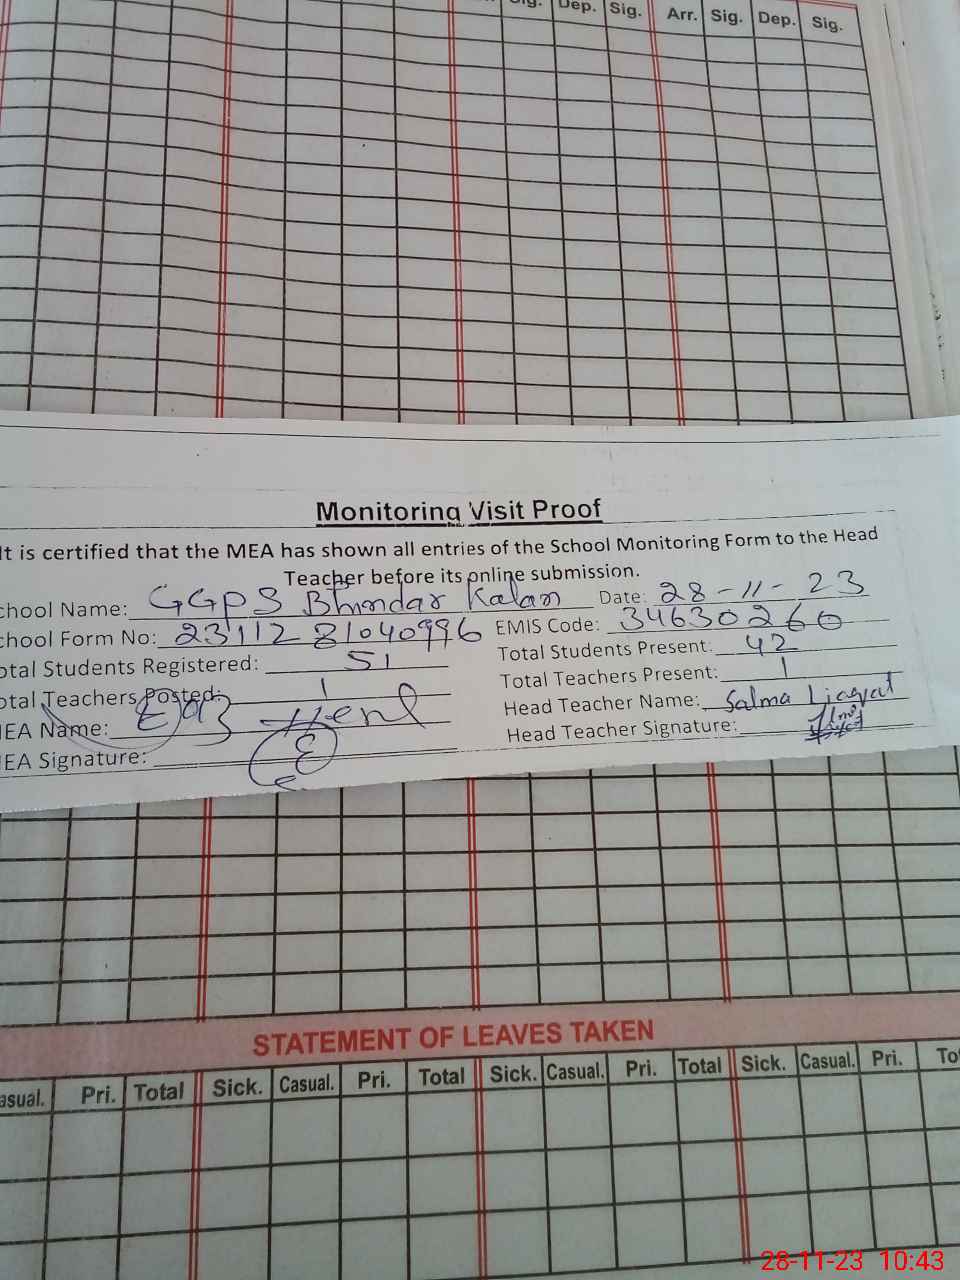 Sig. Dep. Sig. Arr. Sig. Dep. Sig.
Monitoring Visit Proof
It is certified that the MEA has shown all entries of the School Monitoring Form to the Head
Teacher before its online submission.
chool Name: GGPS Bhindar Kalan Date: 28-11-23
chool Form No: 23112 81040996 EMIS Code: 34630260
otal Students Registered: 51 Total Students Present: 42
otal Teachers Posted: 1 Total Teachers Present: 1
MEA Name: Head Teacher Name: Salma Liaqat
MEA Signature: Head Teacher Signature:
STATEMENT OF LEAVES TAKEN
asual. Pri. Total Sick. Casual. Pri. Total Sick. Casual. Pri. Total Sick. Casual. Pri. To
28-11-23 10:43